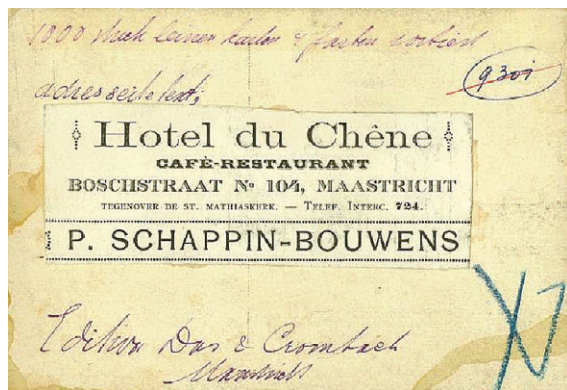 1000 stuck leinen karten 4 farben sortiert
9301
adresseite text;
Hotel du Chêne
CAFÉ-RESTAURANT
BOSCHSTRAAT No 104, MAASTRICHT
TEGENOVER DE ST. MATHIASKERK. — TELEF. INTERC. 724.
P. SCHAPPIN-BOUWENS
Edition Das & Crombach